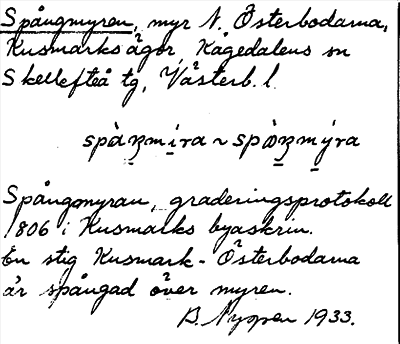 Spångmyren, myr N. Österbodarna,
Kusmarks ägor, Kågedalens sn
Skellefteå tg, Västerb. l.
Spångmyran, graderingsprotokoll
1806 i Kusmarks byaskrin.
En stig Kusmark - Österbodarna
är spångad över myren.
B. 1933.